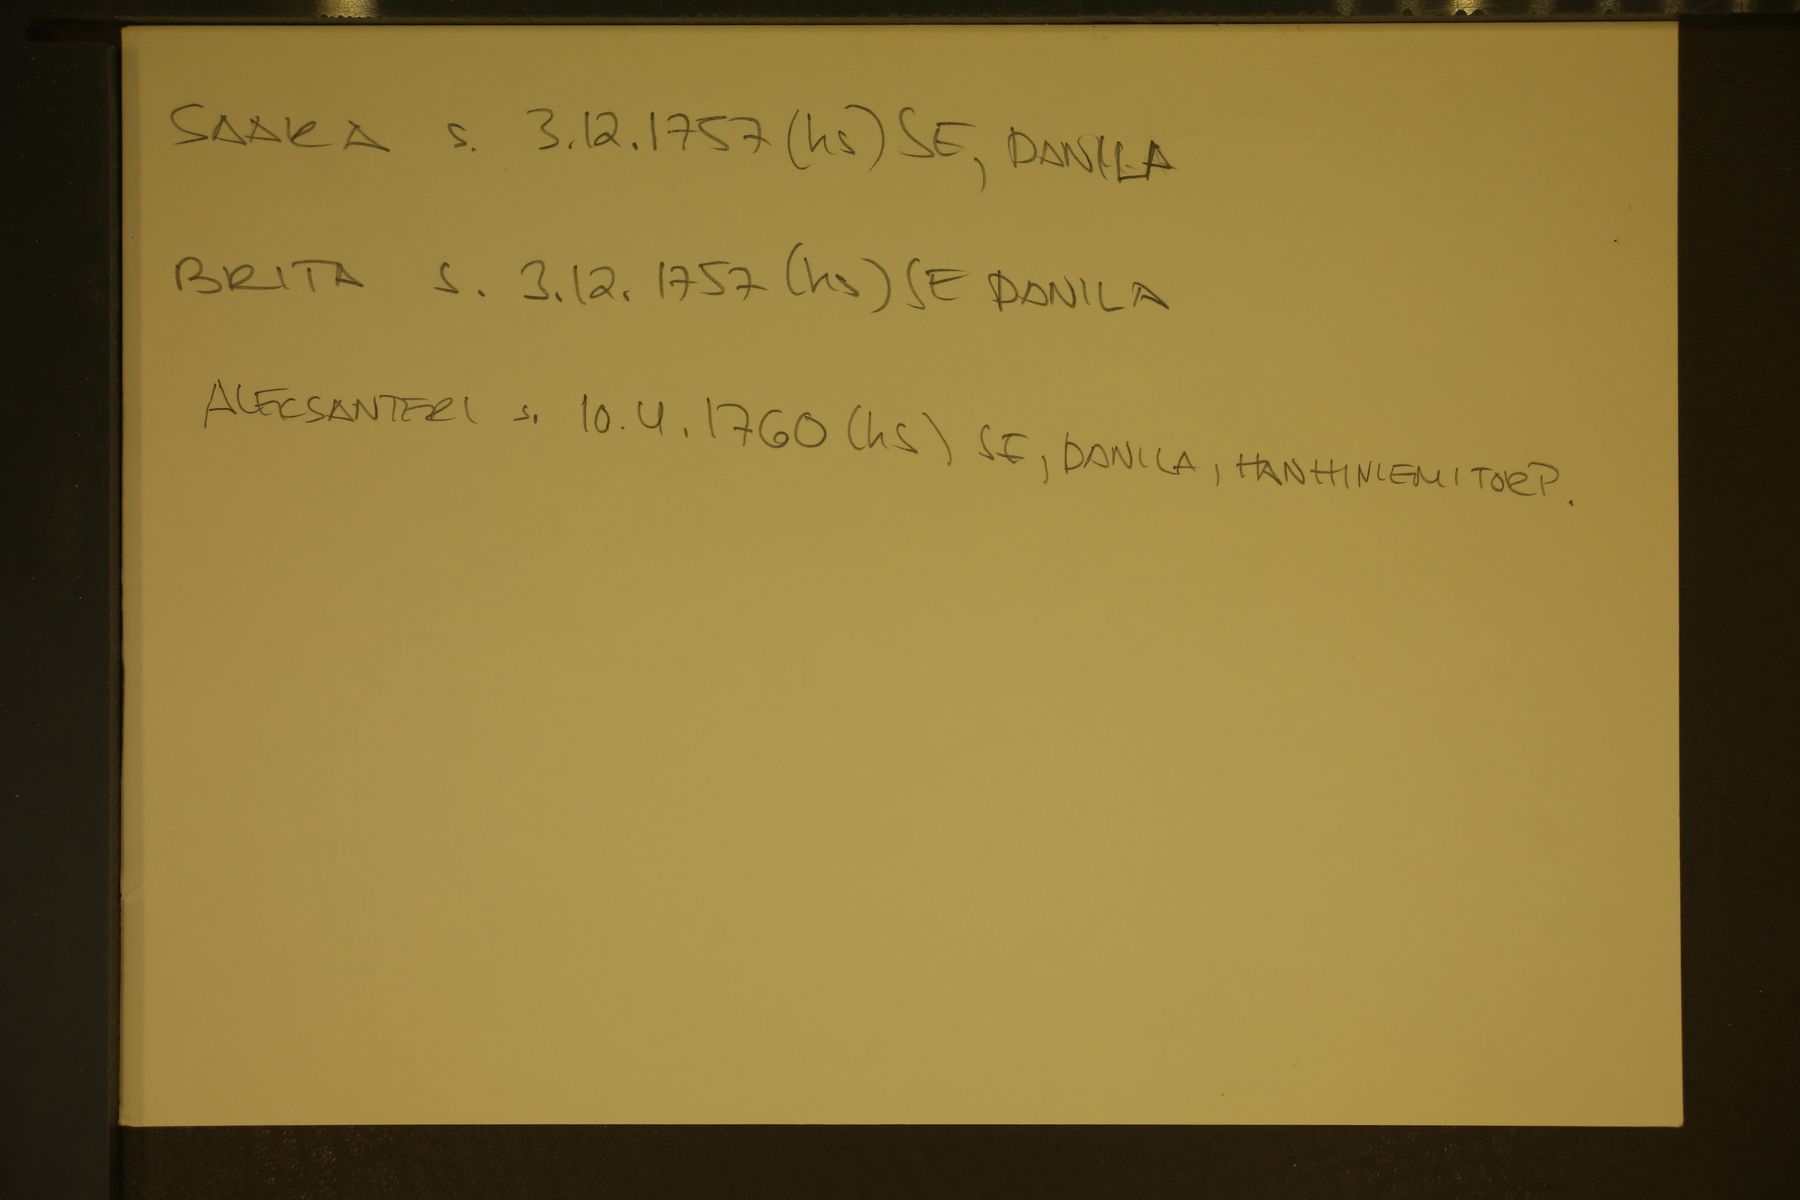 SAARA s. 3.12.1757 (hs) SE, DANILA
BRITA s. 3.12.1757 (hs) SE DANILA
ALEKSANTERI s. 10.4.1760 (hs) SE, DANILA, HANHINIEMI TORP.